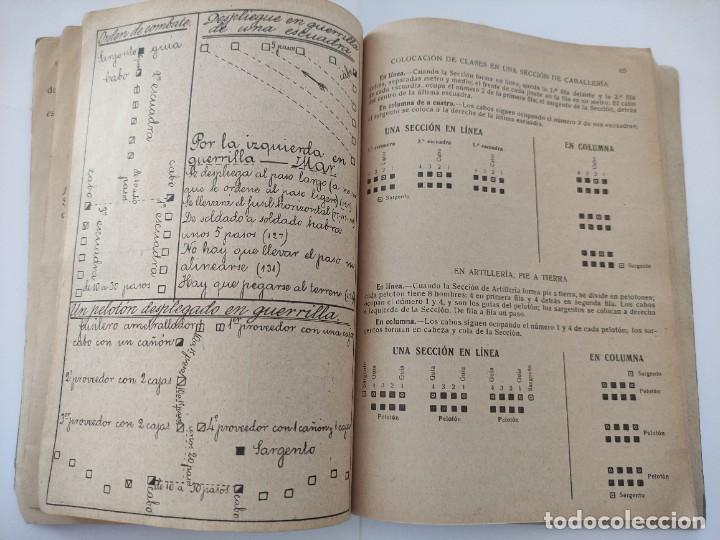 Orden de combate.
Sargento guía
cabo
2ª escuadra
cabo
3ª escuadra
cabo
1ª escuadra
de 10 a 30 pasos
Despliegue en guerrilla
de una escuadra
5 pasos
cabo
Por la izquierda en
guerrilla — MAR
Se despliega al paso largo (a no
que se ordene al paso ligero
Se llevará el fusil horizontal
De soldado a soldado habrá
unos 5 pasos (127)
No hay que llevar el paso ni
alinearse (131)
Hay que pegarse al terreno
Un pelotón desplegado en guerrilla.
cabo con un cañón
1er proveedor con una
2º proveedor con 2 cajas
3er proveedor con 2 cajas
4º proveedor con 1 cañón y 1 caja
unos 20 pasos
Sargento
cabo
de 10 a 30 pasos
cabo
cabo
65
COLOCACIÓN DE CLASES EN UNA SECCIÓN DE CABALLERÍA
En línea.—Cuando la Sección forma en línea, queda la 1.ª fila delante y la 2.ª fila
detrás, separadas metro y medio; el frente de cada jinete en la fila es un metro. El cabo
de cada escuadra, ocupa el número 2 de la primera fila; el sargento de la Sección, detrás
del centro de la última escuadra.
En columna a cuatro.—Los cabos siguen ocupando el número 2 de sus escuadras;
el sargento se coloca a la derecha de la última escuadra.
UNA SECCIÓN EN LÍNEA
EN COLUMNA
3.ª escuadra 2.ª escuadra 1.ª escuadra
Cabo
4 3 2 1 4 3 2 1 4 3 2 1
Sargento
Sargento
EN ARTILLERÍA, PIE A TIERRA
En línea.—Cuando la Sección de Artillería forma pie a tierra, se divide en pelotones;
cada pelotón tiene 8 hombres: 4 en primera fila y 4 detrás en segunda fila. Los cabos
ocupan el número 1 y 4, y son guías del pelotón. Los sargentos se colocan a derecha
e izquierda de la Sección. De fila a fila un paso.
En columna.—Los cabos siguen ocupando el número 1 y 4 de cada pelotón; los sar-
gentos forman en cabeza y cola de la Sección.
UNA SECCIÓN EN LÍNEA
EN COLUMNA
Sargento Guía Guía Guía Guía
4 3 2 1 4 3 2 1 4 3 2 1
Sargento
Pelotón Pelotón
Sargento
Pelotón
Pelotón
Sargento
todocoleccion.net